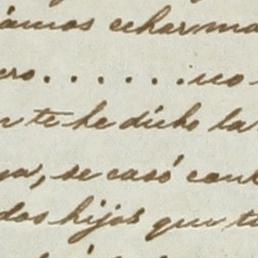 ámos echarma
ero.......no
n te he dicho la
ya, se casó con
dos hijos que t